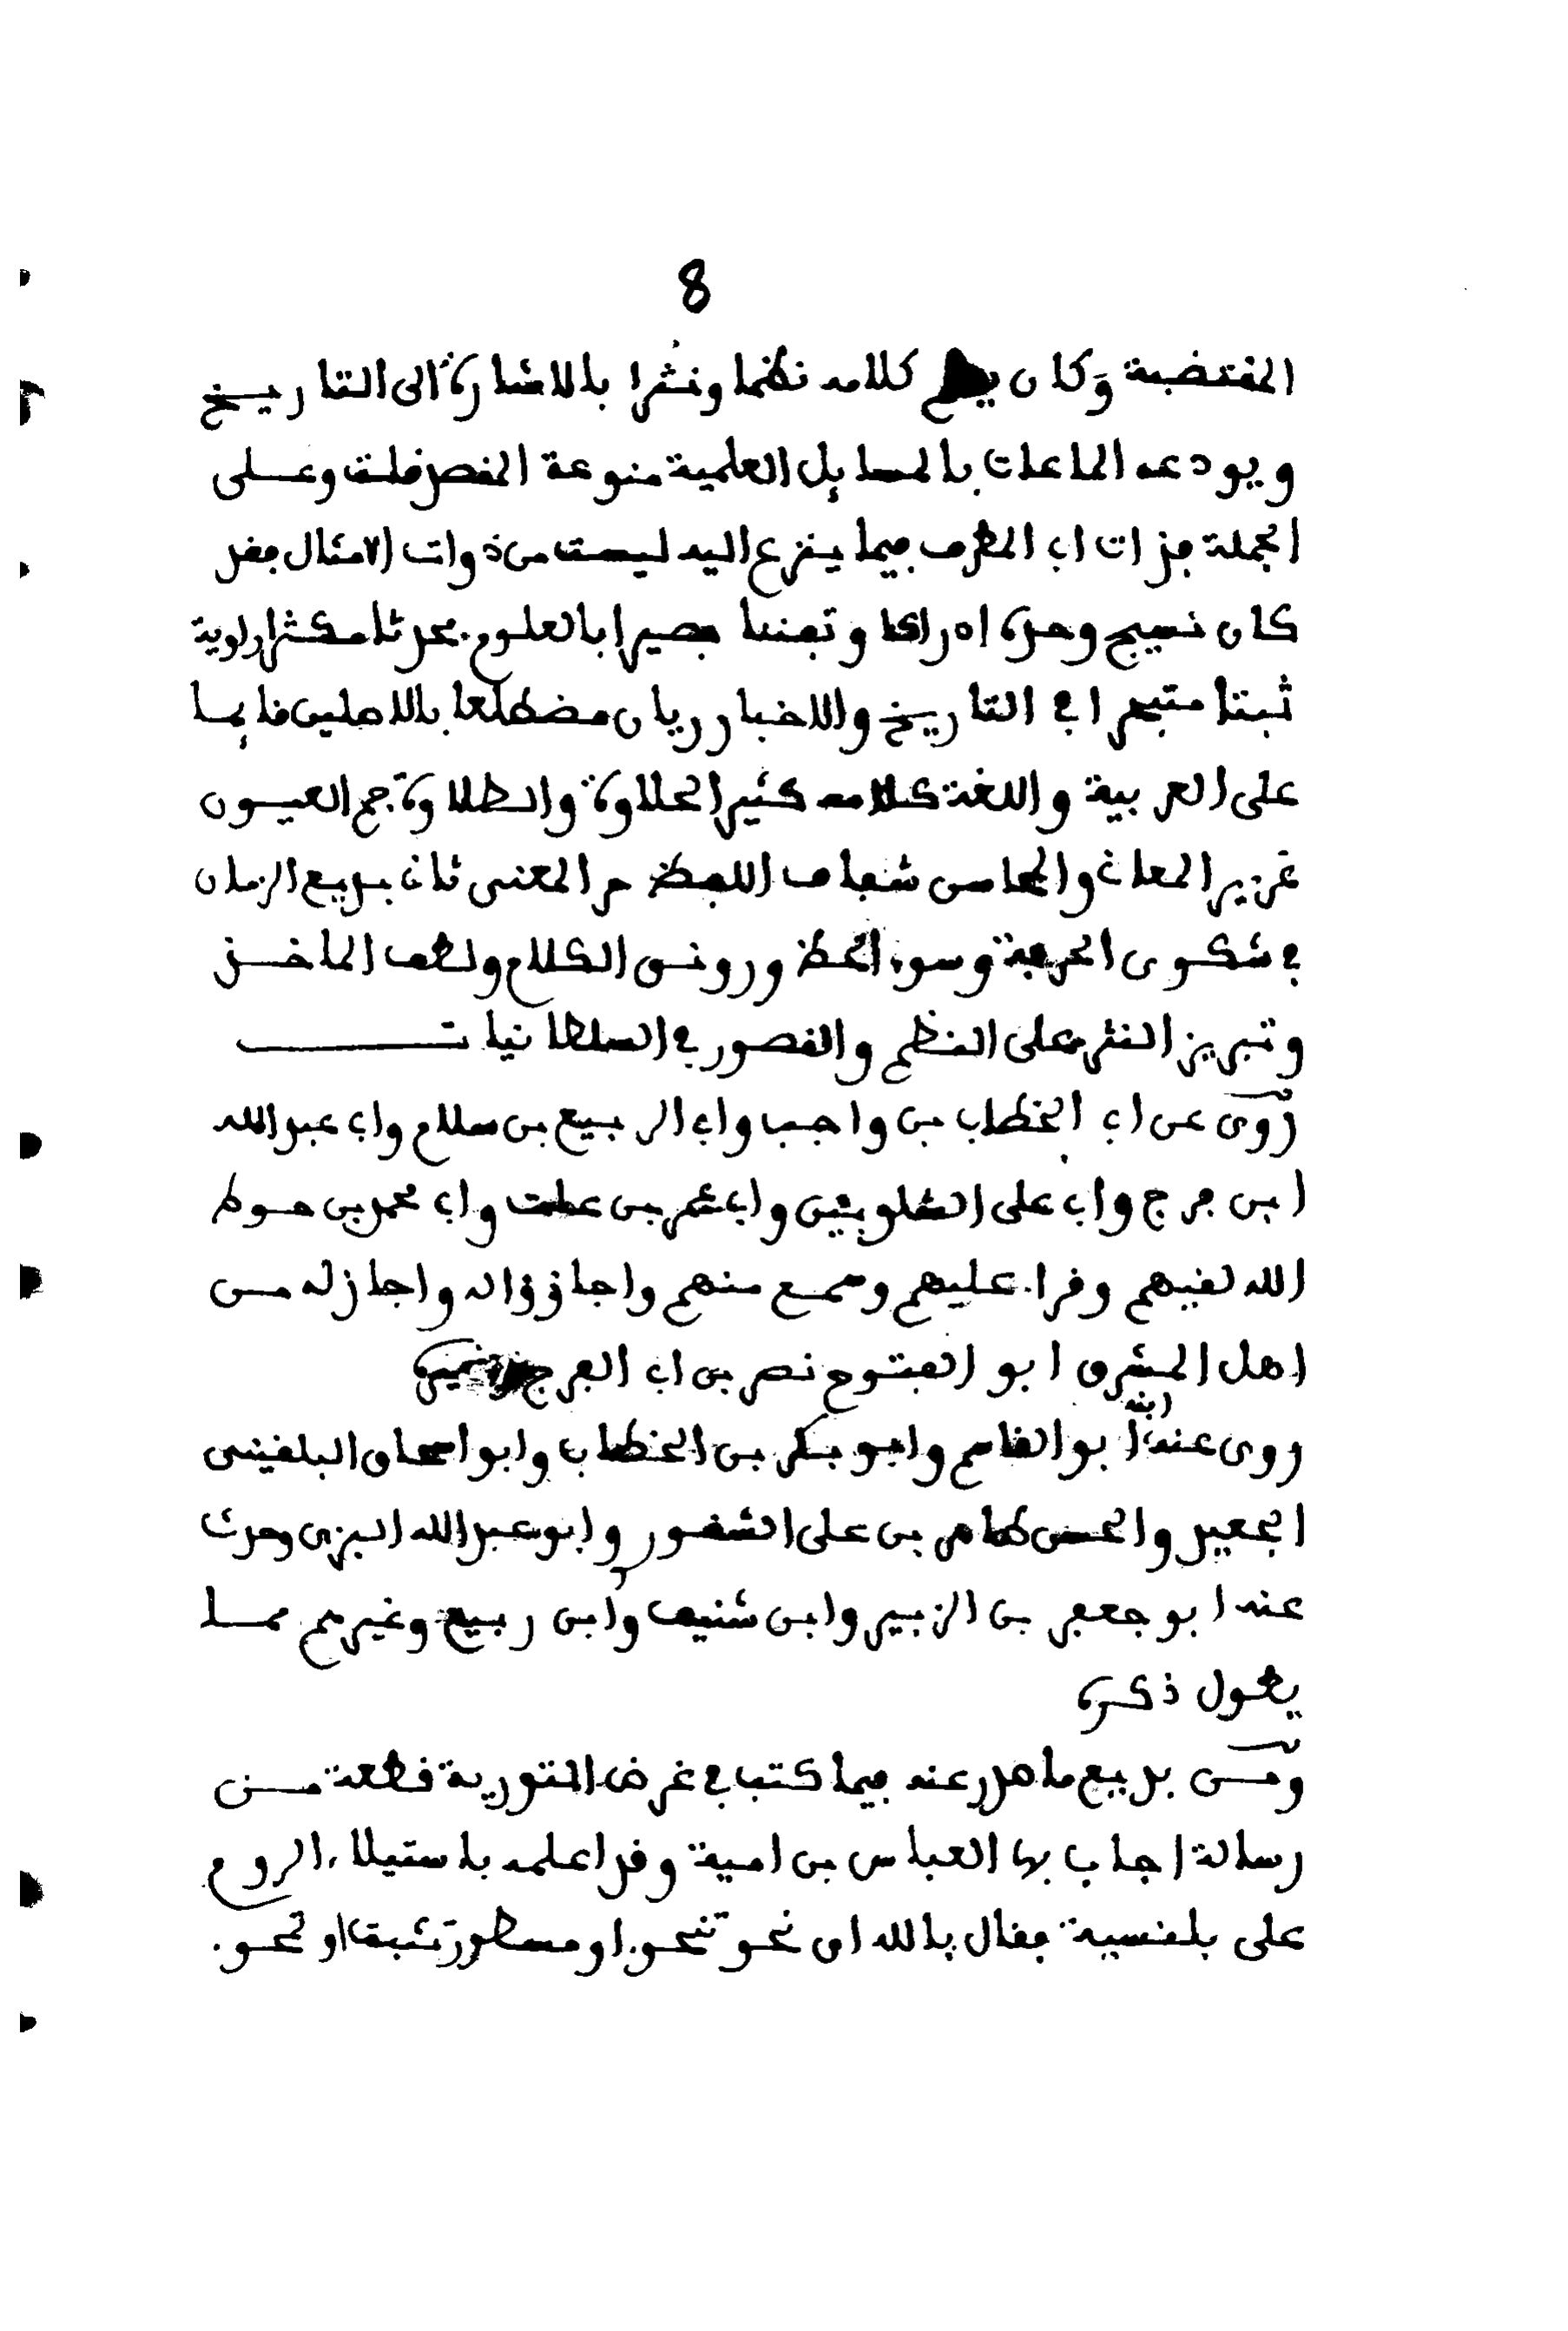 8
المقتضبة وكان يملح كلامه نظما ونثرا بالاشارة الى التاريخ
ويودعه الماعات بالمسايل العلمية منوعة المقصد قلت وعلى
الجملة فذات ابي المطرف فيما ينزع اليه ليست من ذوات الامثال فقد
كان نسيج وحده ادراكا وتفننا بصيرا بالعلوم محدثا مكثرا راوية
ثبتا متبحرا في التاريخ والاخبار ريان مضطلعا بالاصلين قايما
على العربية واللغة كلامه كثير الحلاوة والطلاوة جم العيون
غزير المعاني والمحاسن شفاف اللفظ حر المعنى ثاني بديع الزمان
في شكوى الحرفة وسوء الحظ ورونق الكلام ولطف الماخذ
وتبريز النثر على النظم والقصور في السلطانيات
روى عن ابي الخطاب بن واجب وابي الربيع بن سالم وابي عبد الله
ابن فرج وابي علي الشلوبين وابي عمر بن عات وابي محمد بن حوط
الله لقيهم وقرا عليهم وسمع منهم واجازوا له واجاز له من
اهل المشرق ابو الفتوح نصر بن ابي الفرج
روى عنه ابنه ابو القاسم وابو بكر بن الخطاب وابو اسحاق البلفيقي
الحفيد والحسن طاهر بن علي الشقوري وابو عبد الله البري وحدث
عنه ابو جعفر بن الزبير وابن شنيف وابن ربيع وغيرهم مما
يطول ذكره
ومن بديع ما صدر عنه فيما كتب في غرض التورية قطعة من
رسالة اجاب بها العباس بن امية وقد اعلمه باستيلاء الروم
على بلنسية فقال بالله اى نحو تنحو او مسطور تثبت او تمحو